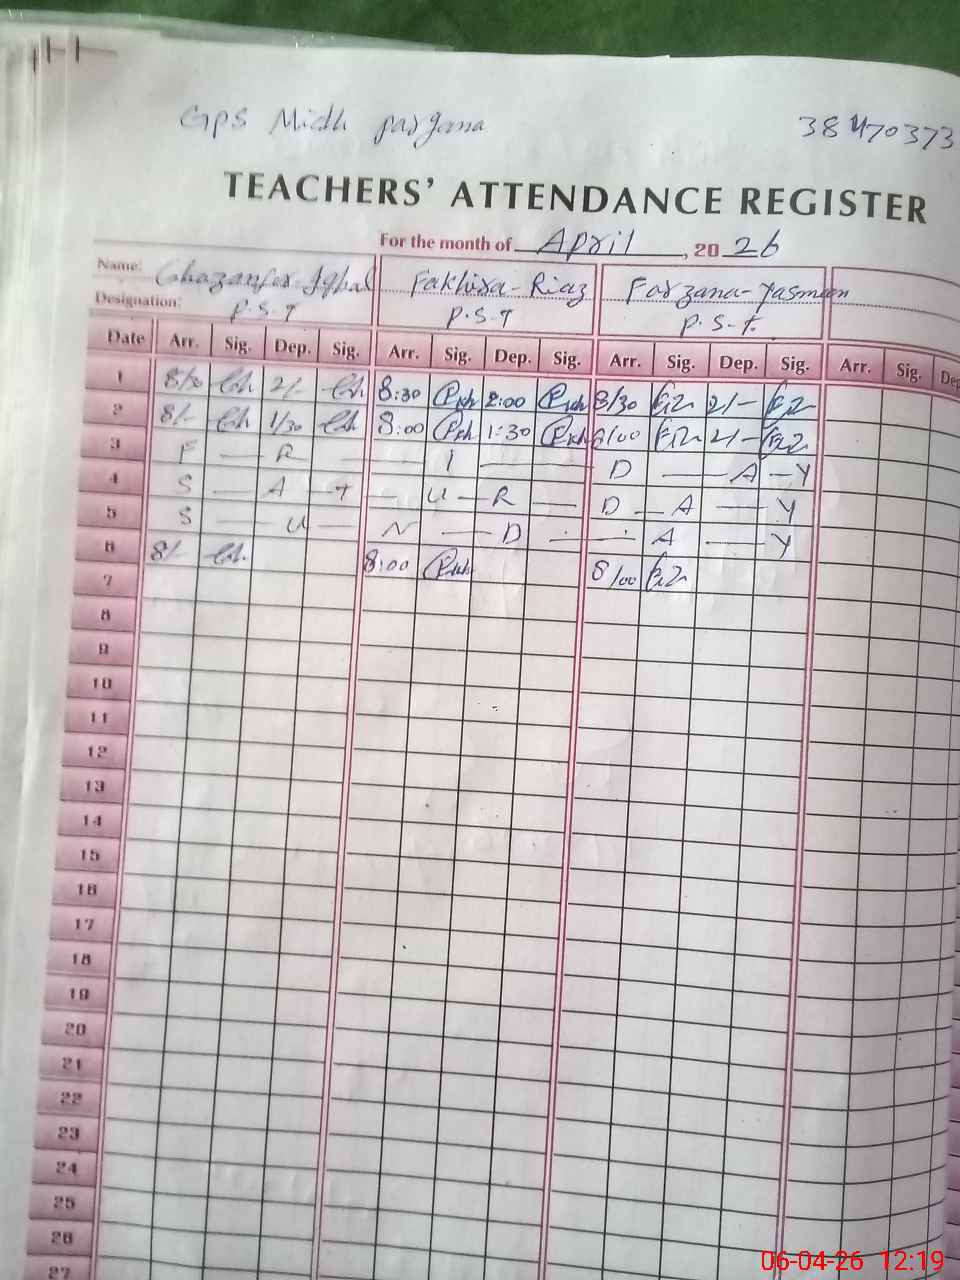 GPS Midh pargana 38470373
TEACHERS' ATTENDANCE REGISTER
For the month of April, 2026
Name: Ghazanfer Iqbal Fakhira-Riaz Farzana-Yasmeen
Designation: P.S.T P.S.T P.S.T.
Date Arr. Sig. Dep. Sig. Arr. Sig. Dep. Sig. Arr. Sig. Dep. Sig. Arr. Sig. Dep
1 8/30 2/- 8:30 2:00 8/30 2/-
2 8/- 1/30 8:00 1:30 8/00 2/-
3 F — R — I — D — A — Y
4 S — A — T — U — R — D — A — Y
5 S — U — N — D — A — Y
6 8/- 8:00 8/00
7
8
9
10
11
12
13
14
15
16
17
18
19
20
21
22
23
24
25
26
27
06-04-26 12:19